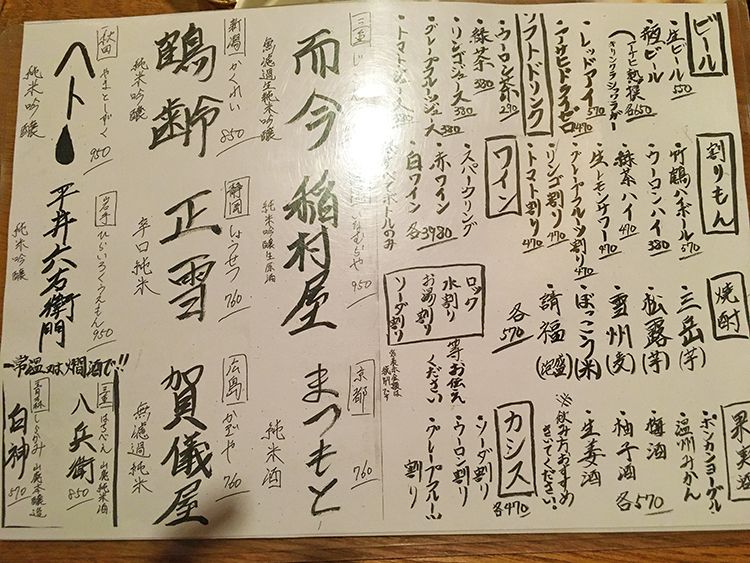 ビール
・生ビール 550
・瓶ビール
(アサヒ熟撰
キリンクラシックラガー
各650
・レッドアイ 570
・アサヒドライゼロ 470
ソフトドリンク
・ウーロン茶 290
・緑茶 380
・リンゴジュース 380
・グレープフルーツジュース 380
・トマトジュース 380
割りもん
・竹鶴ハイボール 570
・ウーロンハイ 380
・緑茶ハイ 470
・生レモンサワー 470
・グレープフルーツ割り 470
・リンゴ割り 470
・トマト割り 470
ワイン
・スパークリング
・赤ワイン
・白ワイン 各3980
ボトルのみ
焼酎
・三岳(芋)
・松露(芋)
・雪州(麦)
・ぼっこう(米)
・請福(泡盛)
各570
ロック
水割り
お湯割り
ソーダ割り
等お伝え
ください
果実酒
・ボンカンヨーグル
・温州みかん
・梅酒
・柚子酒
・生姜酒
各570
※飲み方おすすめ
きいてください!
カシス
・ソーダ割り
・ウーロン割り
・グレープフルーツ
割り
各470
三重 じこん
而今
無濾過生純米吟醸
新潟 かくれい
鶴齢
純米吟醸
850
秋田 やまとしずく
ヤマト
純米吟醸
950
いなむらや
稲村屋
純米吟醸生原酒
950
静岡 しょうせつ
正雪
辛口純米
760
岩手 ひらいろくうえもん
平井六右衛門
純米吟醸
950
京都
まつもと
純米酒
760
広島 かぎや
賀儀屋
無濾過純米
760
常温又は燗酒で!!
三重 はちべえ
八兵衛
山廃純米酒
850
青森 しらかみ
白神
山廃本醸造
570